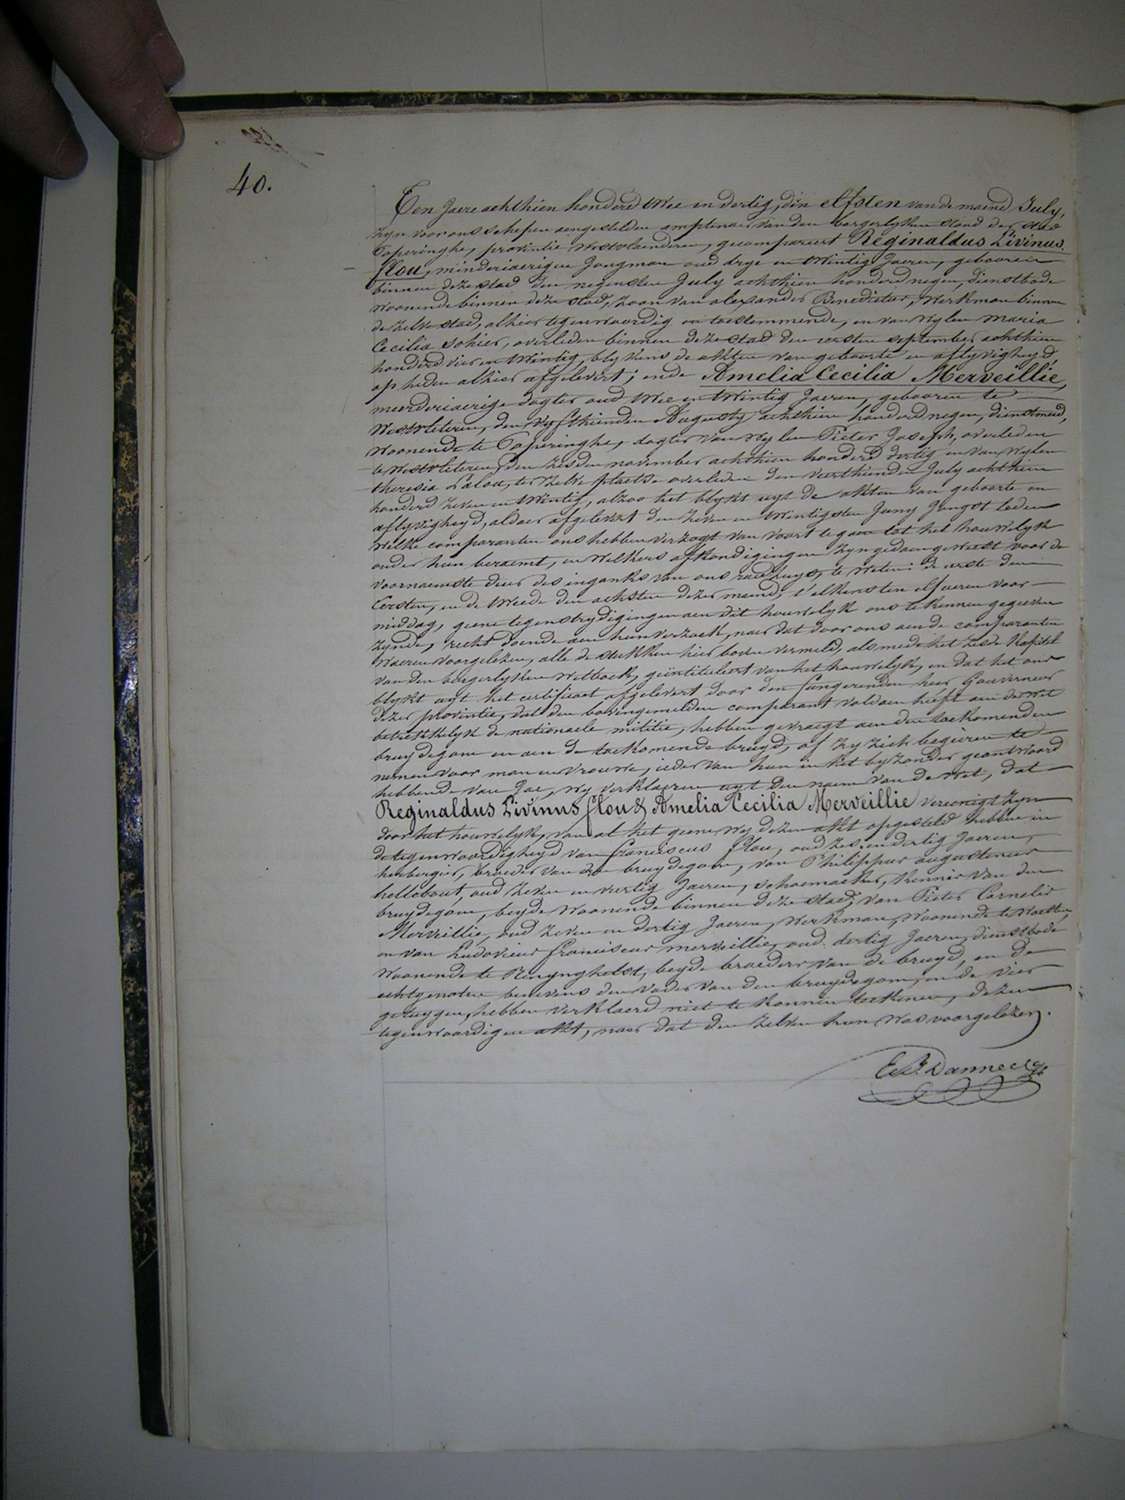 40.
Ten Jaere achthien honderd twee en dertig, den Elfsten van de maend July,
zyn voor ons schepen aengestelden amptenaer van den borgerlyken stand der stad
Poperinghe, provintie westvlaenderen, gecompareert Reginaldus Livinus
Flou, minderjaerigen Jongman oud drye en twintig Jaeren, gebooren
binnen deze stad den negensten July achthien honderd negen, dienstbode
woonende binnen deze stad, zoon van alexander Benedictus, Werkman binnen
de zelve stad, alhier tegenwoordig en toestemmende, en van wylen Maria
Cecilia Sohier, overleden binnen deze stad den eersten september achthien
honderd vier en twintig, blykens de akten van geboorte en aflyvigheyd,
op heden alhier afgelevert; ende Amelia Cecilia Merveillie,
meerderjaerige dogter oud twee en twintig Jaeren, gebooren te
Westvleteren, den vyfthienden Augusty achthien honderd negen, dienstmeid,
woonende te Poperinghe, dogter van wylen Pieter Joseph, overleden
te westvleteren, den zesden november achthien honderd dertig en van wylen
theresia Lalou, ter zelve plaetse overleden den veerthienden July achthien
honderd zeven en twintig, alzoo het blykt uyt de akten van geboorte en
aflyvigheyd, aldaer afgelevert den zeven en twintigsten Juny Jongst leden
welke comparanten ons hebben verzogt van voort te gaen tot het houwelyk
onder hun beraemt, en welkers afkondigingen zyn gedaen geweest voor de
voornaemste deur des ingangs van ons raedhuys, te weten: de eerste den
Eersten, en de tweede den achtsten dezer maend, t'elkensten elf uren voor
middag, geene tegenstrydigingen aen dit houwelyk ons te kennen gegeven
zynde, recht doende aen hun verzoek, naer dat door ons aen de comparanten
waeren voorgelezen, alle de stukken hier boven vermeld, als mede het zesde Kapitel
van den borgerlyken Wetboek, geïntituleert van het houwelyk, en dat het ons
blykt uyt het certificaet afgelevert door den fungerenden heer Gouverneur
dezer provintie, dat den bovengemelden comparant voldaen heeft aen de wet
betrekkelyk de nationaele militie, hebben gevraegt aen den toekomenden
bruydegom en aen de toekomende bruyd, of zy zich begeiren te
nemen voor man en vrouwe; ieder van hun in het byzonder geantwoord
hebbende van Jae, wy verklaeren uyt den naem van de wet, dat
Reginaldus Livinus Flou & Amelia Cecilia Merveillie vereenigt zyn
door het houwelyk, van al het geene wy dezen akt opgesteld hebben in
de tegenwoordigheyd van franciscus Flou, oud zes en dertig Jaeren,
herbergier, broeder van den bruydegom, van Philippus augustinus
hollebout, oud zeven en veertig Jaeren, schoenmaeker, kennis van den
bruydegom, beyde woonende binnen deze stad, van Pieter Cornelis
Merveillie, oud zeven en dertig Jaeren, Werkman, woonende te
en van Ludovicus franciscus merveillie, oud dertig Jaeren, dienstbode
woonende te Renynghelst, beyde broeders van de bruyd, en de
echtgenoten benevens den vader van den bruydegom, en de vier
getuygen, hebben verklaerd niet te konnen teekenen, dezen
tegenwoordigen akt, naer dat den zelven hun was voorgelezen.